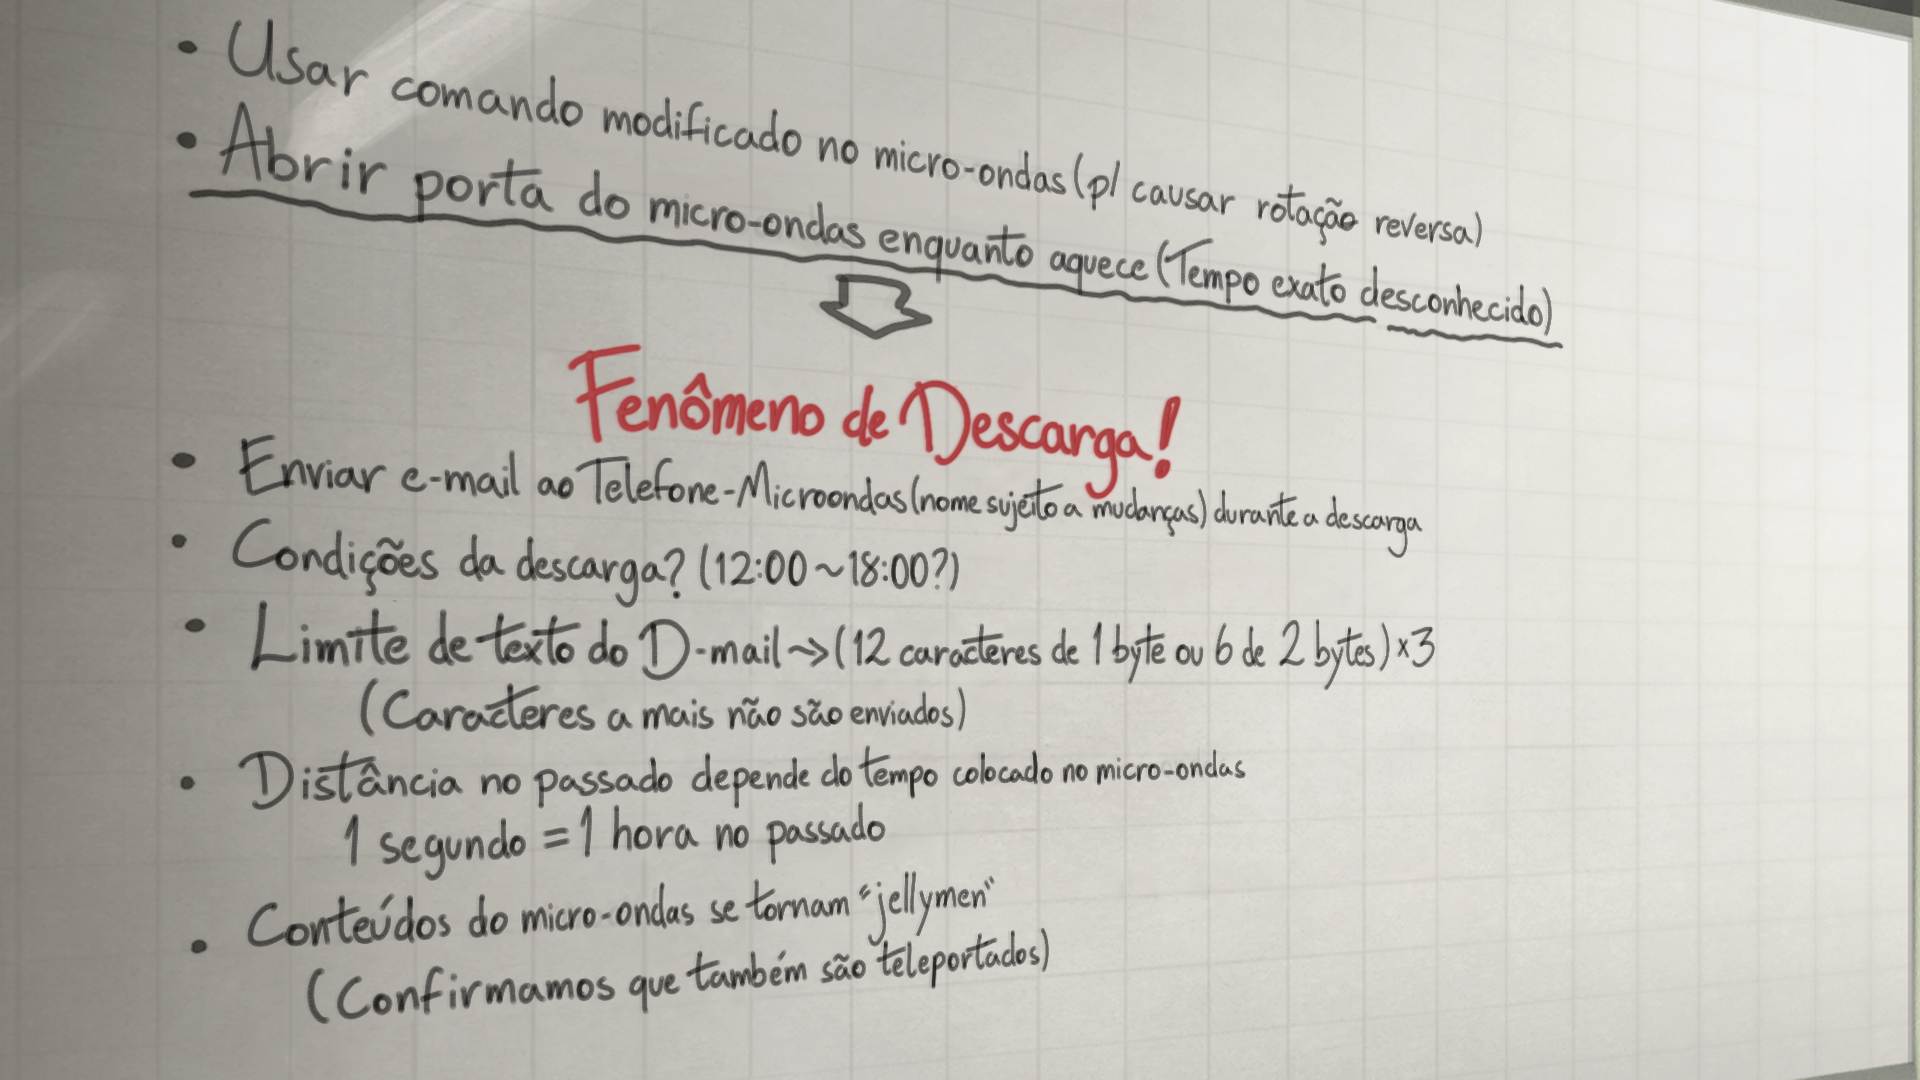 • Usar comando modificado no micro-ondas (p/ causar rotação reversa)
• Abrir porta do micro-ondas enquanto aquece (Tempo exato desconhecido)
Fenômeno de Descarga!
• Enviar e-mail ao Telefone-Microondas (nome sujeito a mudanças) durante a descarga
• Condições da descarga? (12:00~18:00?)
• Limite de texto do D-mail → (12 caracteres de 1 byte ou 6 de 2 bytes) x3
(Caracteres a mais não são enviados)
• Distância no passado depende do tempo colocado no micro-ondas
1 segundo = 1 hora no passado
• Conteúdos do micro-ondas se tornam "jellymen"
(Confirmamos que também são teleportados)